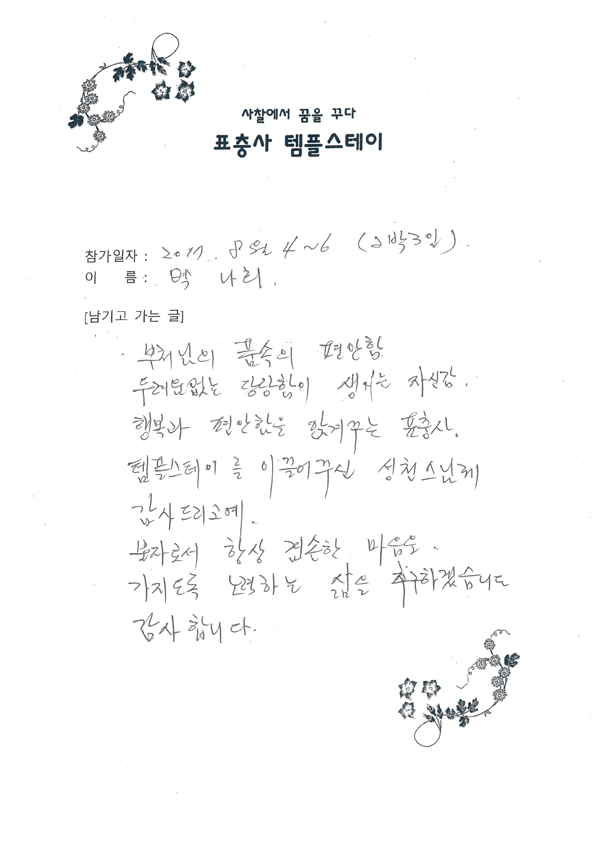 사찰에서 꿈을 꾸다
표충사 템플스테이
참가일자 : 2017. 8월 4~6 (2박3일).
이 름 : 백 나희.
[남기고 가는 글]
부처님의 품속의 편안함
두려움없는 당당함이 생기는 자신감.
행복과 편안함을 안겨주는 표충사.
템플스테이를 이끌어주신 성천스님께
감사드리고예.
불자로서 항상 겸손한 마음을.
가지도록 노력하는 삶을 추구하겠습니다
감사합니다.